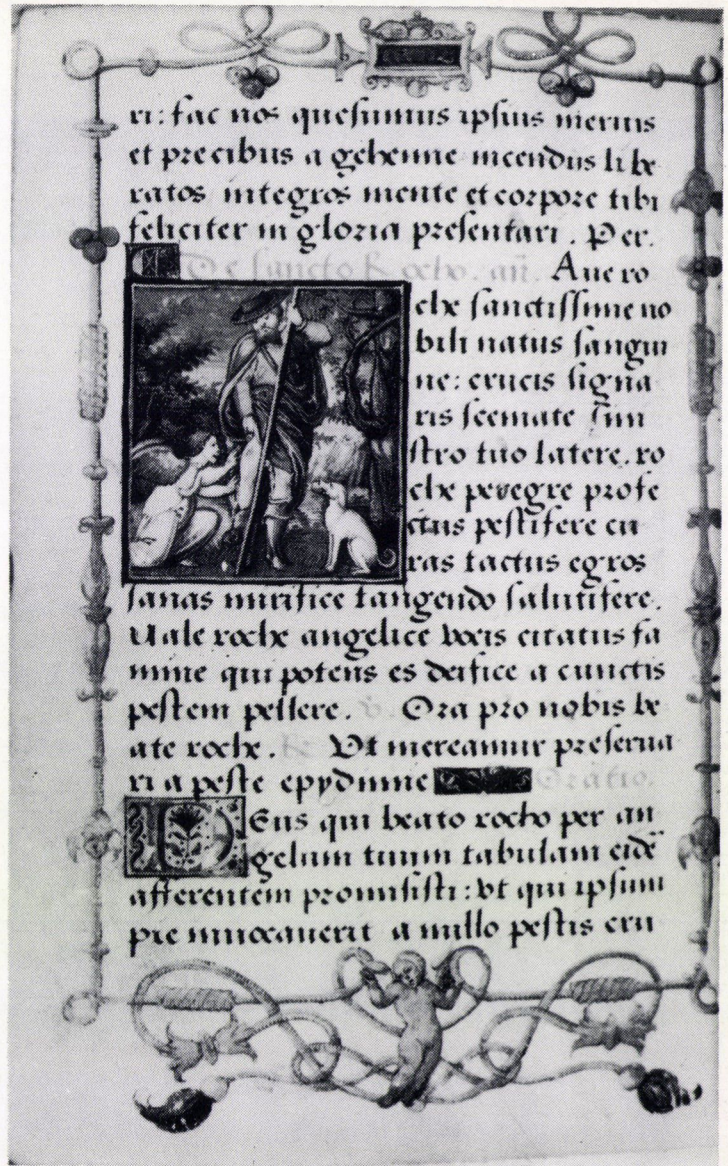 ri: fac nos quesumus ipsius meritis
et precibus a gehenne incendiis libe
ratos integros mente et corpore tibi
feliciter in gloria presentari. Per.
De sancto Rocho. añ. Aue ro
che sanctissime no
bili natus sangui
ne: crucis signa
ris scemate sini
stro tuo latere. ro
che peregre profe
ctus pestifere cu
ras tactus egros
sanas mirifice tangendo salutifere.
Uale roche angelice vocis citatus fa
mine qui potens es deifice a cunctis
pestem pellere. Ora pro nobis be
ate roche. Vt mereamur preserua
ri a peste epydimie Oratio.
DEus qui beato rocho per an
gelum tuum tabulam eidē
afferentem promisisti: vt qui ipsum
pie inuocauerit a nullo pestis cru